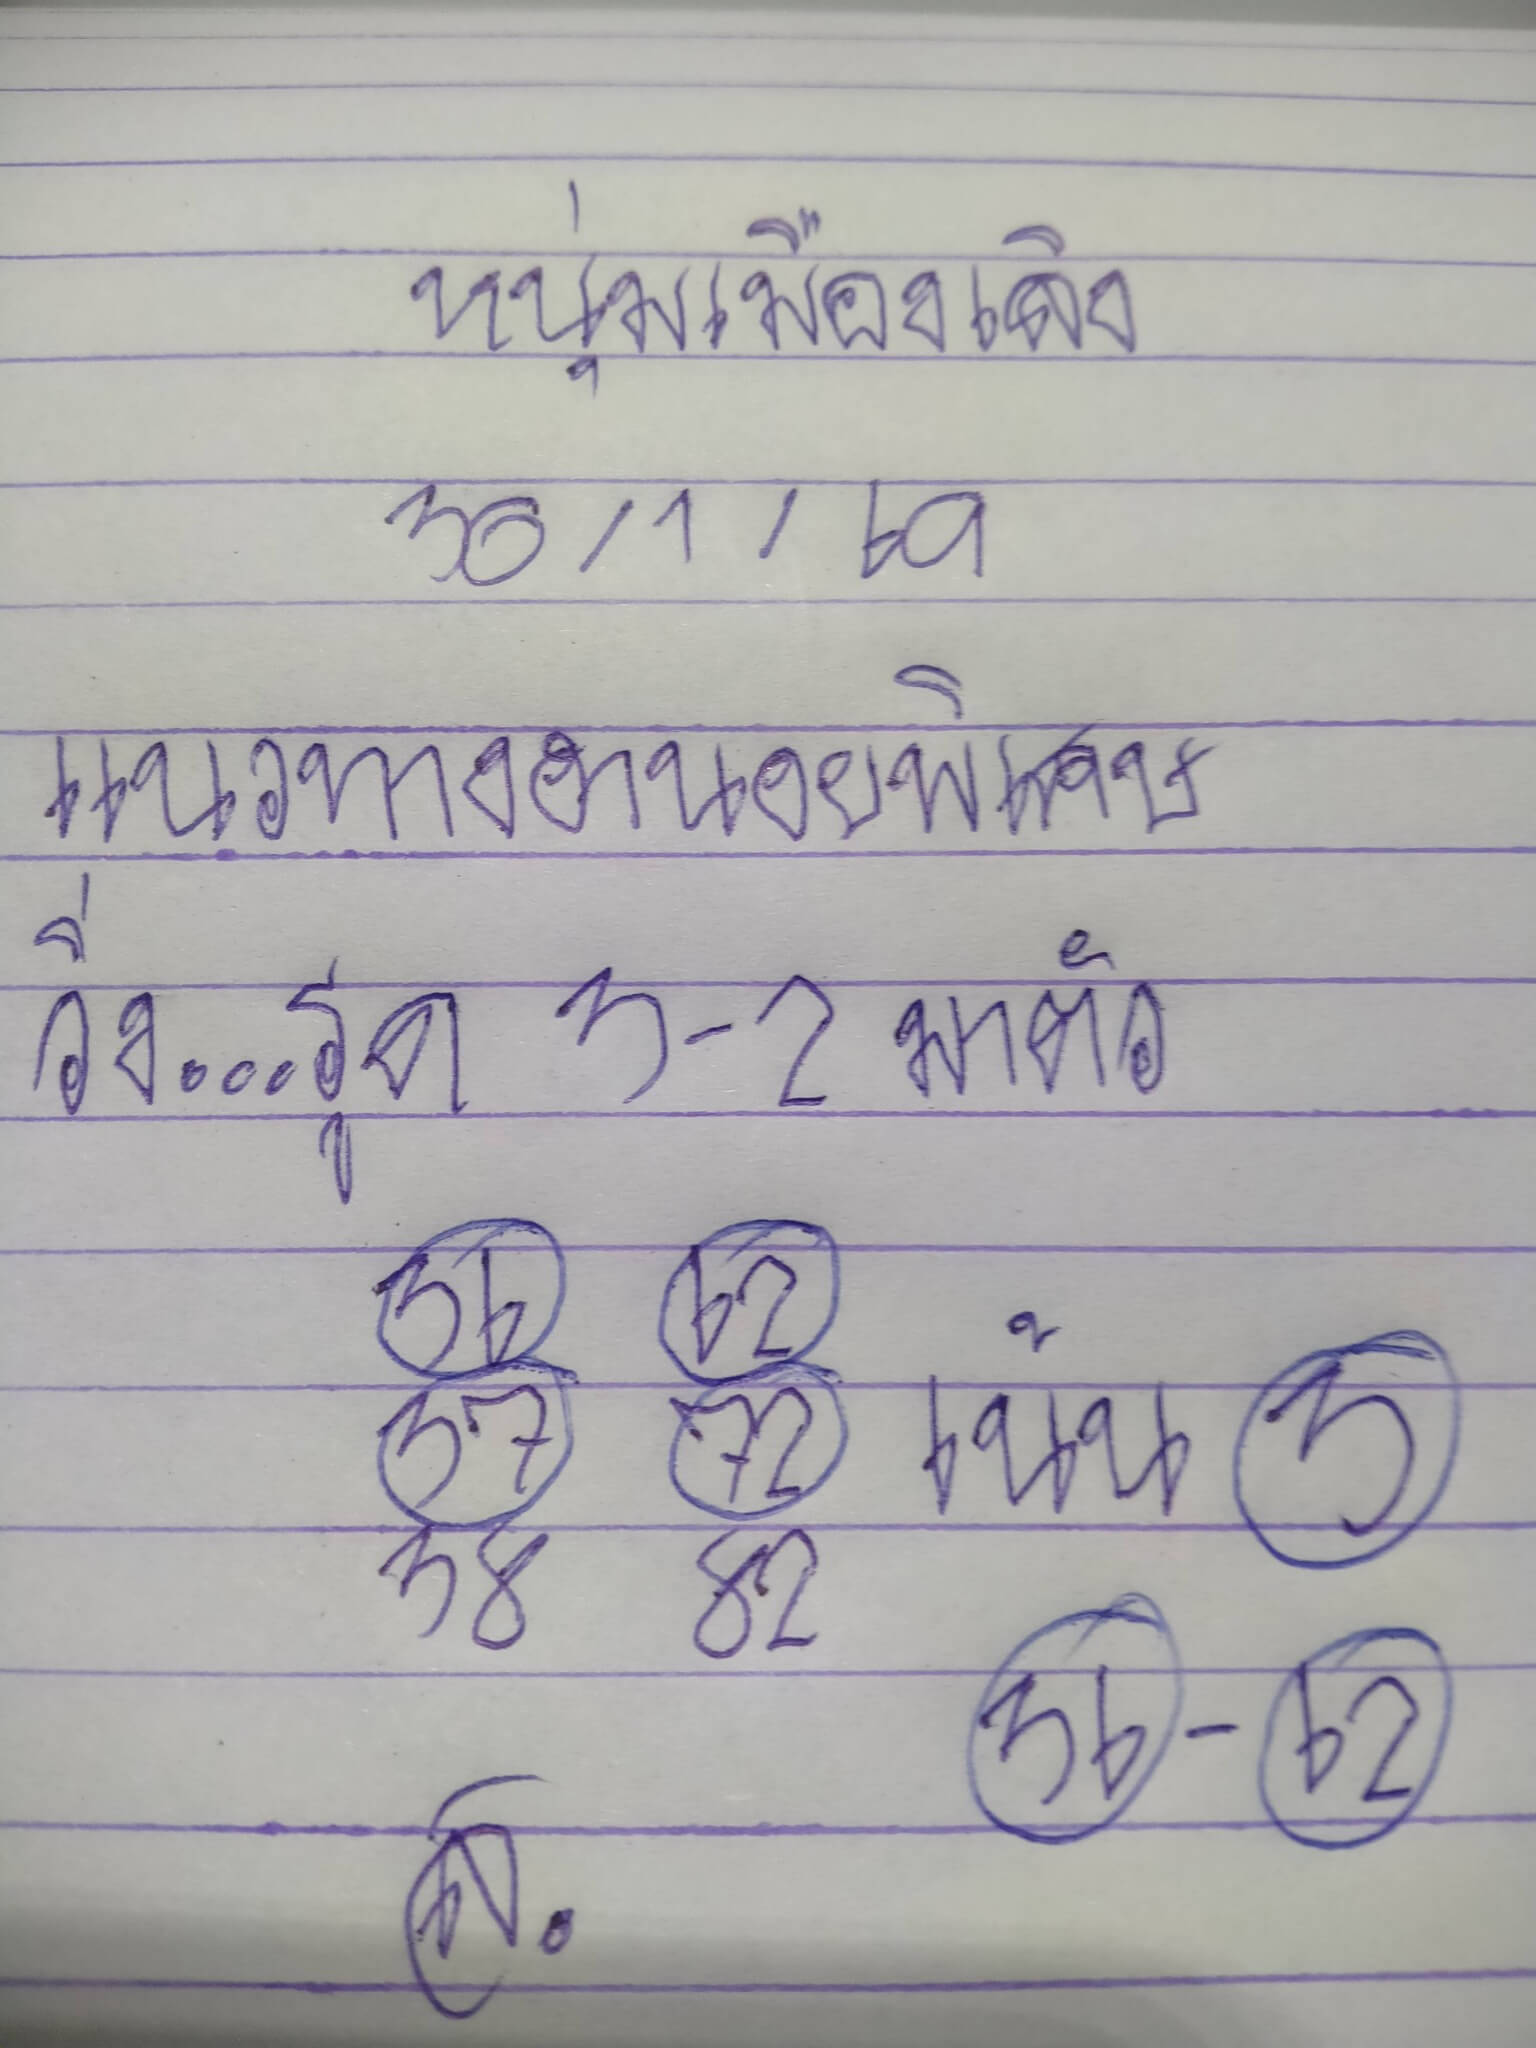 หนุ่มเมืองเดิง
30/1/69
แนวทางฮานอยพิเศษ
วิ่ง...รูด 3-2 มาตัว
36 62
37 72 เน้น 3
38 82
36-62